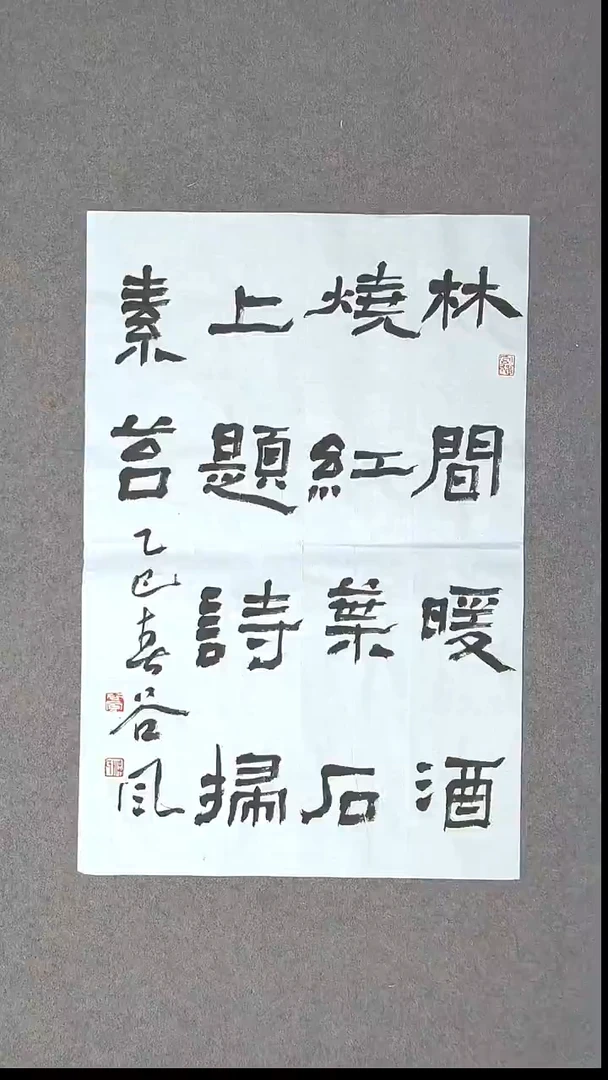 林間暖酒
燒紅葉石
上題詩掃
素苔乙巳春谷風